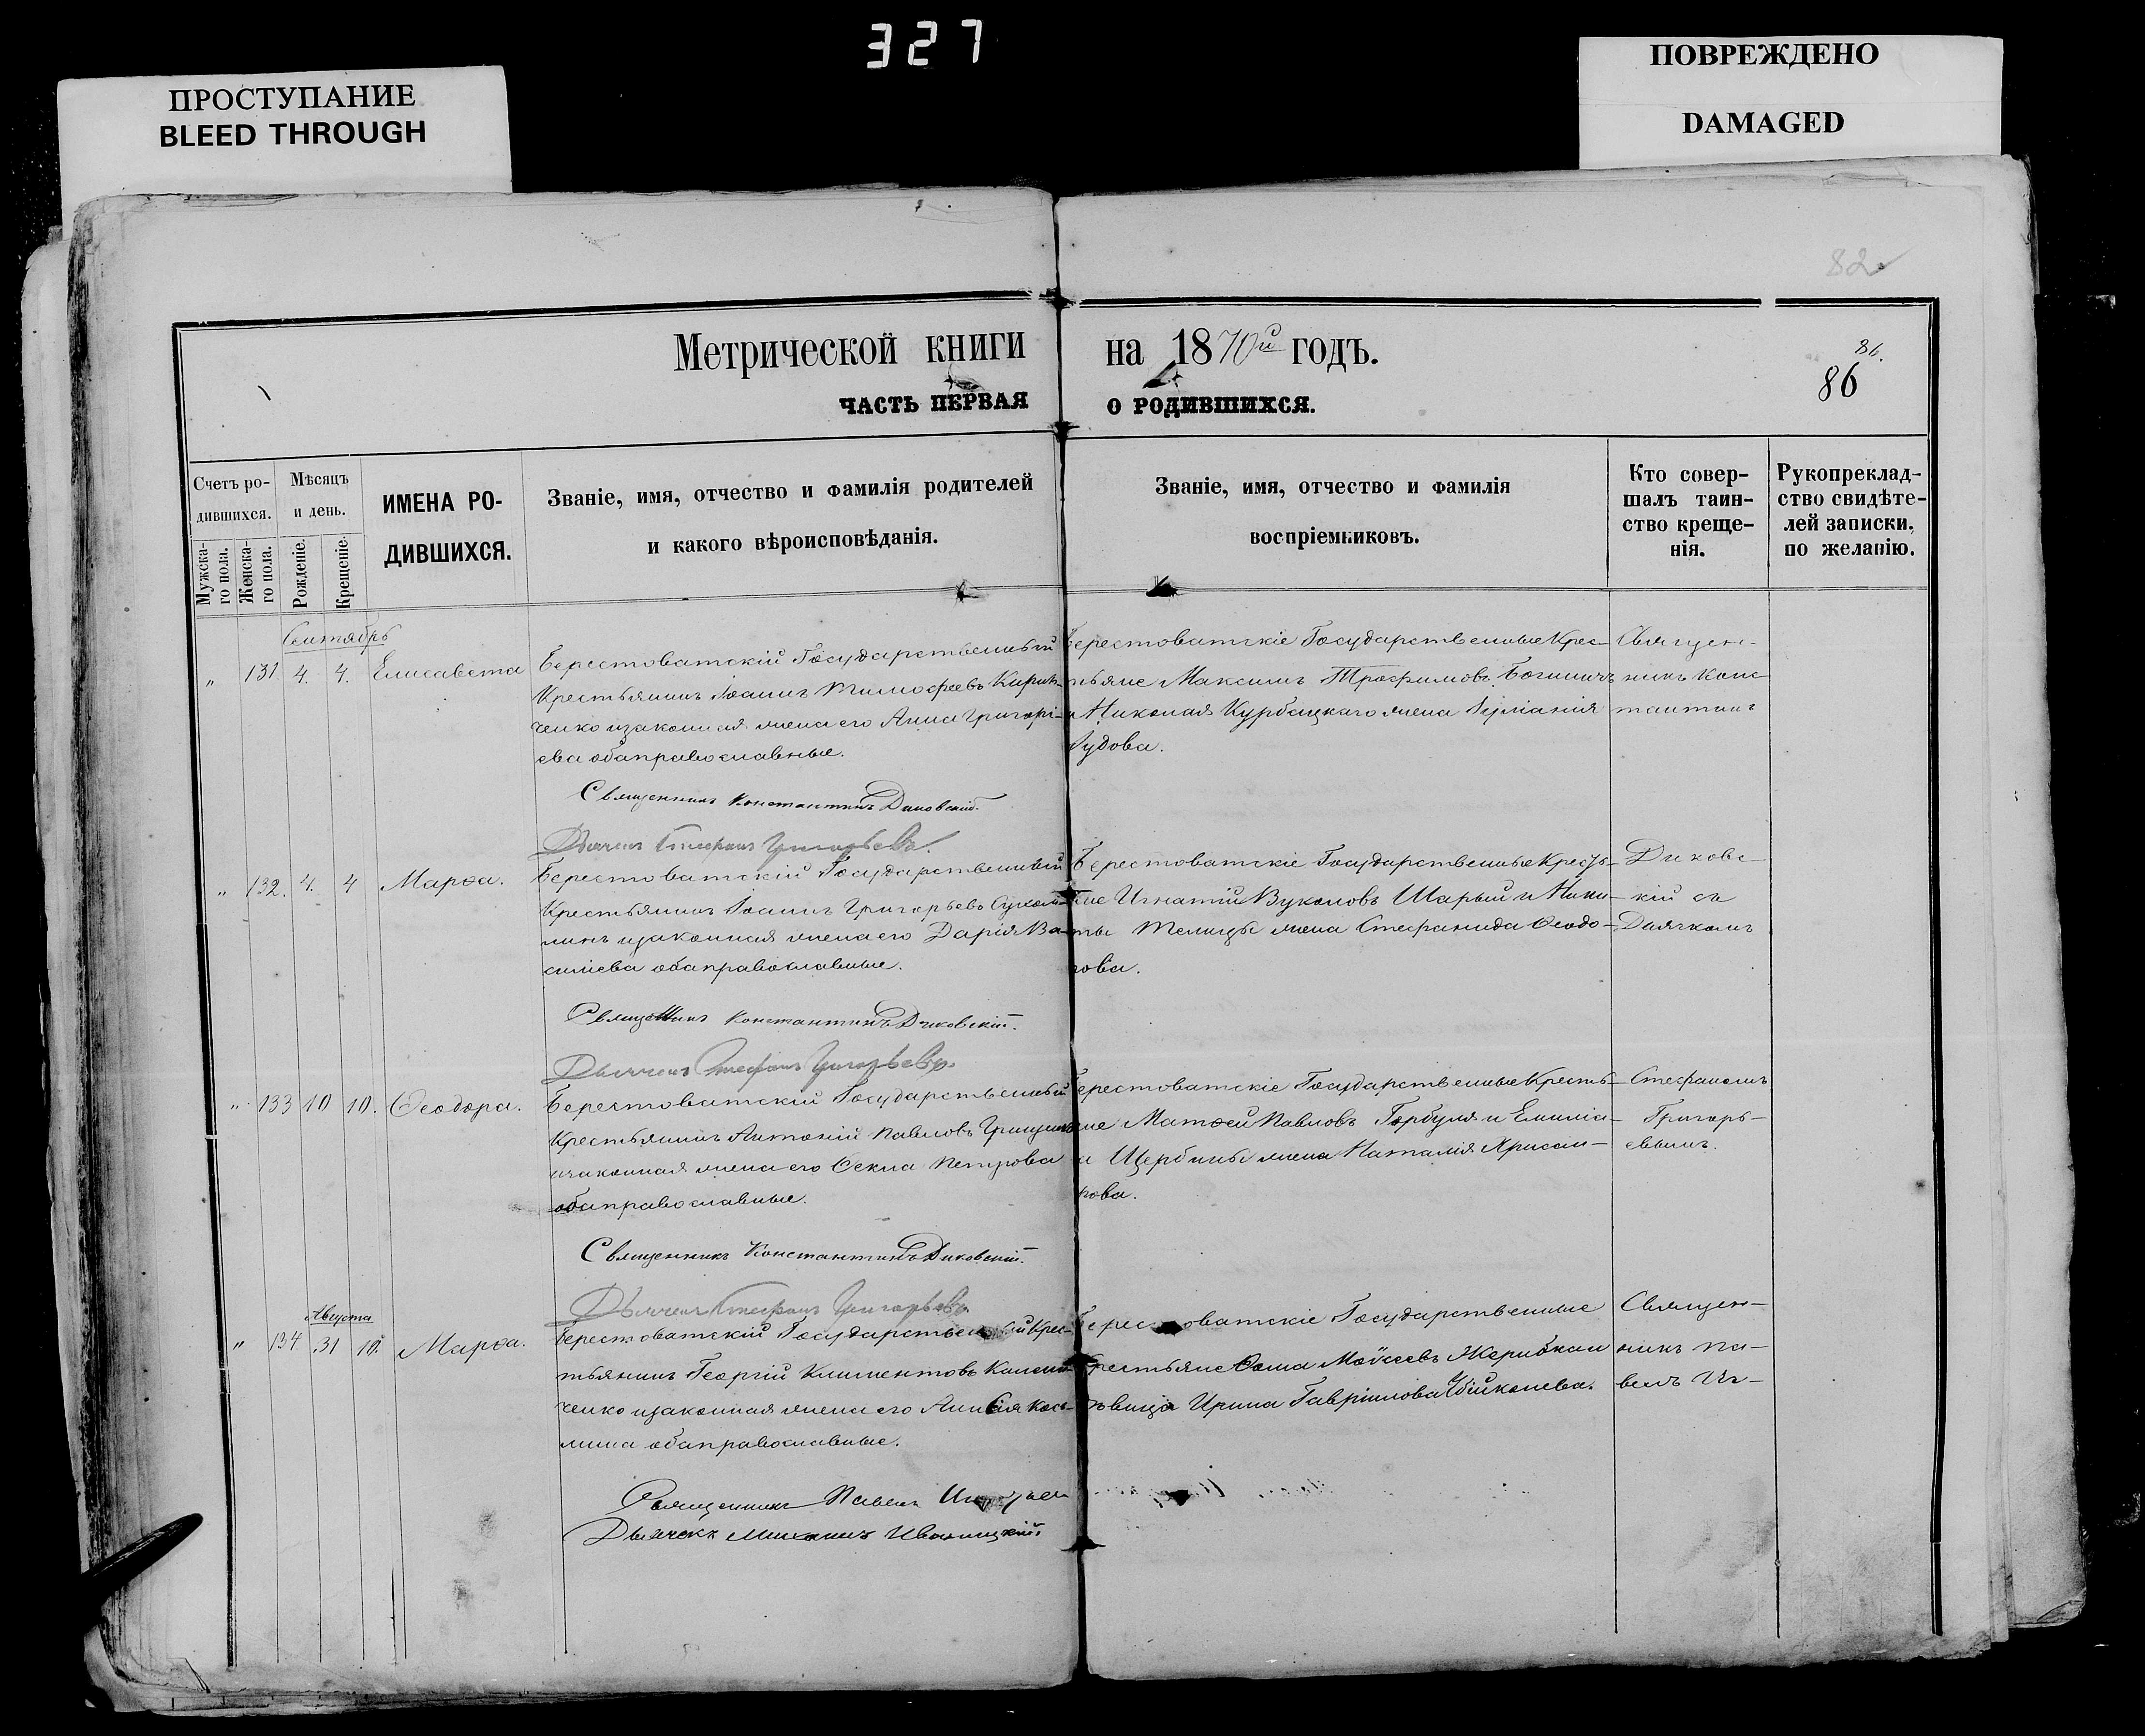 327
ПРОСТУПАНИЕ
BLEED THROUGH
ПОВРЕЖДЕНО
DAMAGED
82
Метрической книги на 1870й годъ.
86.
86
ЧАСТЬ ПЕРВАЯ О РОДИВШИХСЯ.
Счетъ ро-
дившихся.
Мужска-
го пола.
Женска-
го пола.
Мѣсяцъ
и день.
Рожденіе.
Крещеніе.
ИМЕНА РО-
ДИВШИХСЯ.
Званіе, имя, отчество и фамилія родителей
и какого вѣроисповѣданія.
Званіе, имя, отчество и фамилія
воспріемниковъ.
Кто совер-
шалъ таин-
ство креще-
нія.
Рукопреклад-
ство свидѣте-
лей записки,
по желанію.
Сентябрь
„ 131 4. 4. Елисавета
Берестоватскій Государственный
Крестьянинъ Іоаннъ Тимофеевъ Кирич-
ченко изаконная жена его Анна Григорі-
ева оба православные.
Священникъ Константинъ Диковскій.
Дьячекъ Стефанъ Григорьевъ.
Берестоватскіе Государственные Крес-
тьяне Максимъ Трофимовъ
и Николая Курбацкаго жена
Священ-
никъ Конс-
тантинъ
„ 132. 4. 4 Марѳа.
Берестоватскій Государственный
Крестьянинъ Іоаннъ Григорьевъ Сухом-
линъ изаконная жена его Дарія Ва-
силіева оба православные.
Священникъ Константинъ Диковскій.
Дьячекъ Стефанъ Григорьевъ.
Берестоватскіе Государственные Кресть-
яне Игнатій Вуколовъ Шарый и Ники-
ты Телицы жена Стефанида Ѳеодо-
рова.
Диковс-
кій съ
Дьячкомъ
„ 133 10 10. Ѳеодора.
Берестоватскій Государственный
Крестьянинъ Антоній Павловъ
изаконная жена его Ѳекла Петрова
оба православные.
Священникъ Константинъ Диковскій.
Дьячекъ Стефанъ Григорьевъ.
Берестоватскіе Государственные Кресть-
яне Матѳей Павловъ Горбуля и Емилiа-
на Щербины жена Наталія Хрисан-
ѳова.
Стефаномъ
Григорь-
евымъ.
Августа
„ 134 31 10. Марѳа.
Берестоватскій Государственный Крес-
тьянинъ Георгій Климентовъ
ченко изаконная жена его Анисія Кось-
мина оба православные.
Священникъ Павелъ
Дьячекъ Михаилъ Иваницкій
Берестоватскіе Государственные
Крестьяне Ѳома Моѵсеевъ Жерибкам
дѣвица Ирина Гавріилова
Священ-
никъ Па-
велъ